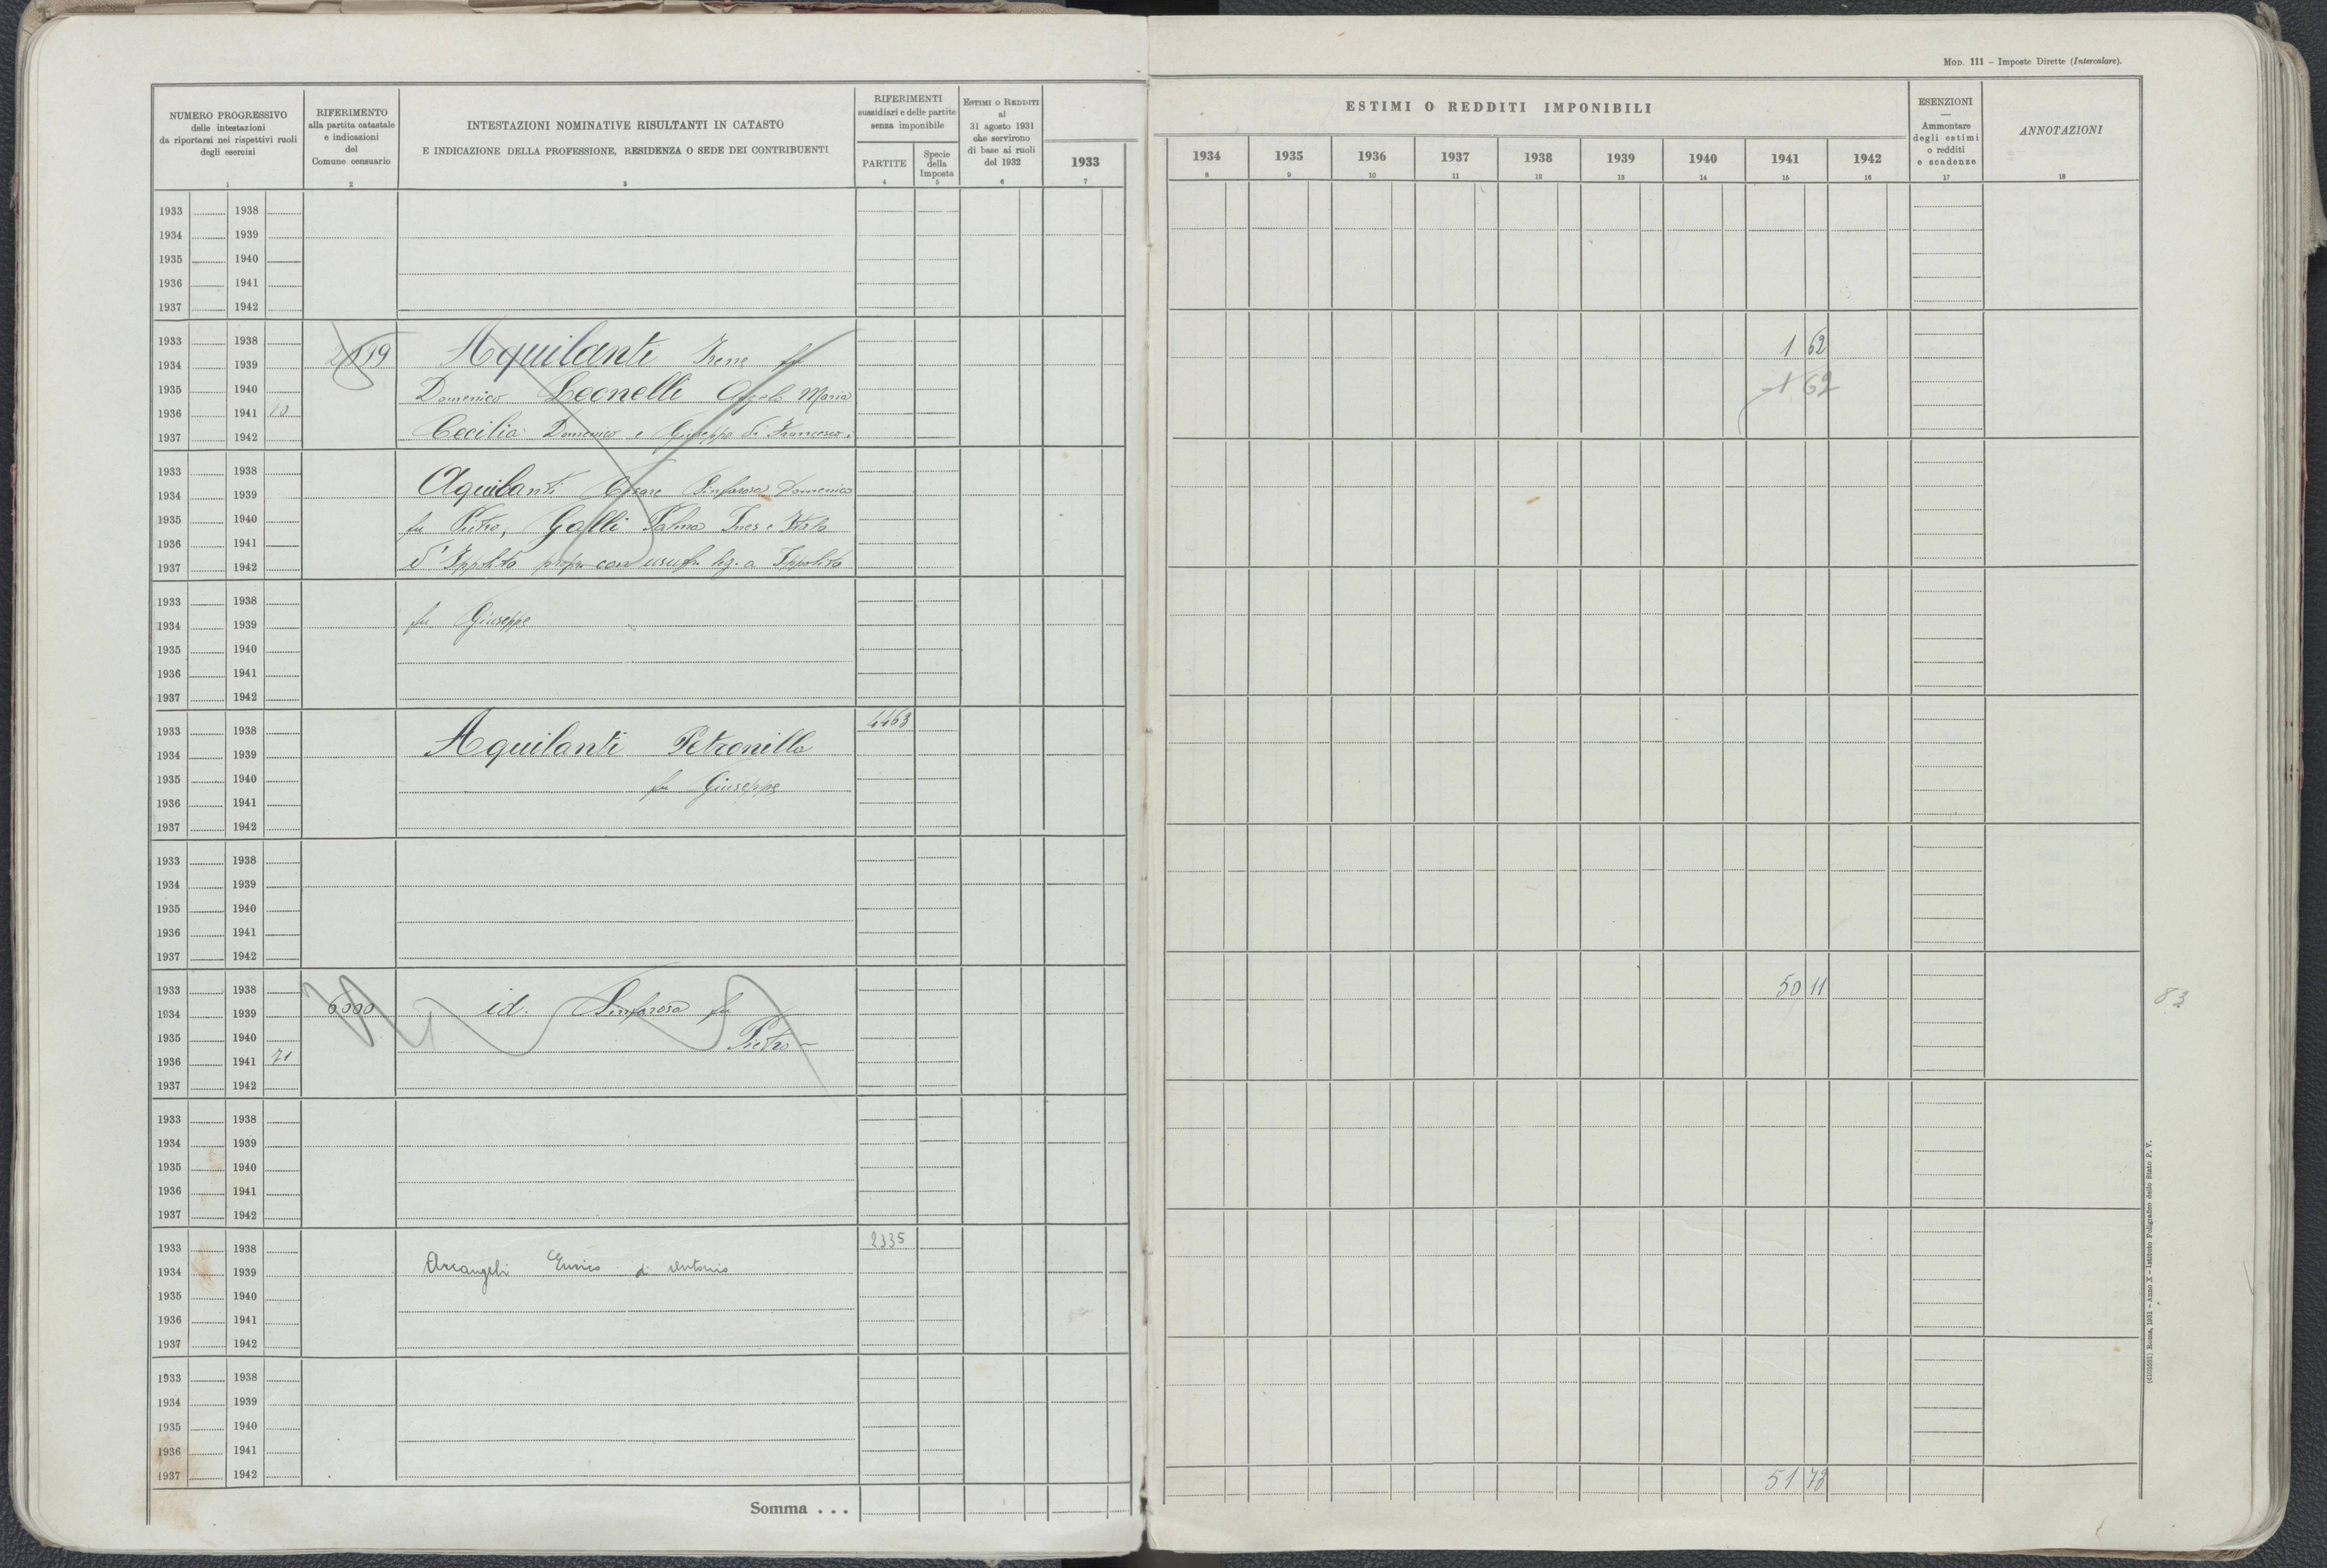 MOD. 111 – Imposte Dirette (Intercalare).
NUMERO PROGRESSIVO
delle intestazioni
da riportarsi nei rispettivi ruoli
degli esercizi
1
RIFERIMENTO
alla partita catastale
e indicazioni
del
Comune censuario
2
INTESTAZIONI NOMINATIVE RISULTANTI IN CATASTO
E INDICAZIONE DELLA PROFESSIONE, RESIDENZA O SEDE DEI CONTRIBUENTI
3
RIFERIMENTI
sussidiari e delle partite
senza imponibile
PARTITE
4
Specie
della
Imposta
5
ESTIMI O REDDITI
al
31 agosto 1931
che servirono
di base ai ruoli
del 1932
6
1933
7
ESTIMI O REDDITI IMPONIBILI
1934 1935 1936 1937 1938 1939 1940 1941 1942
8 9 10 11 12 13 14 15 16
ESENZIONI
—
Ammontare
degli estimi
o redditi
e scadenze
17
ANNOTAZIONI
18
1933 1938
1934 1939
1935 1940
1936 1941
1937 1942
1933 1938
1934 1939 Aquilanti Irene fu 1 62
1935 1940 Domenico Leonelli Maria 1 62
1936 1941 70
1937 1942 Cecilia Domenico e Giuseppe di Francesco
1933 1938
1934 1939 Aquilanti Cesare Sinforosa Domenico
1935 1940 fu Pietro, Galli Palma Ines e Itala
1936 1941
1937 1942 d'Ippolito propr. con usufr. leg. a Ippolito
1933 1938
1934 1939 fu Giuseppe
1935 1940
1936 1941
1937 1942
1933 1938 4463
1934 1939 Aquilanti Petronilla
1935 1940 fu Giuseppe
1936 1941
1937 1942
1933 1938
1934 1939
1935 1940
1936 1941
1937 1942
1933 1938 50 11
1934 1939 id. Sinforosa fu 83
1935 1940 Pietro
1936 1941 71
1937 1942
1933 1938
1934 1939
1935 1940
1936 1941
1937 1942
1933 1938 2335
1934 1939 Arcangeli Enrico di Antonio
1935 1940
1936 1941
1937 1942
1933 1938
1934 1939
1935 1940
1936 1941
1937 1942
51 73
Somma . . .
Roma, 1931 – Anno X – Istituto Poligrafico dello Stato P. V.